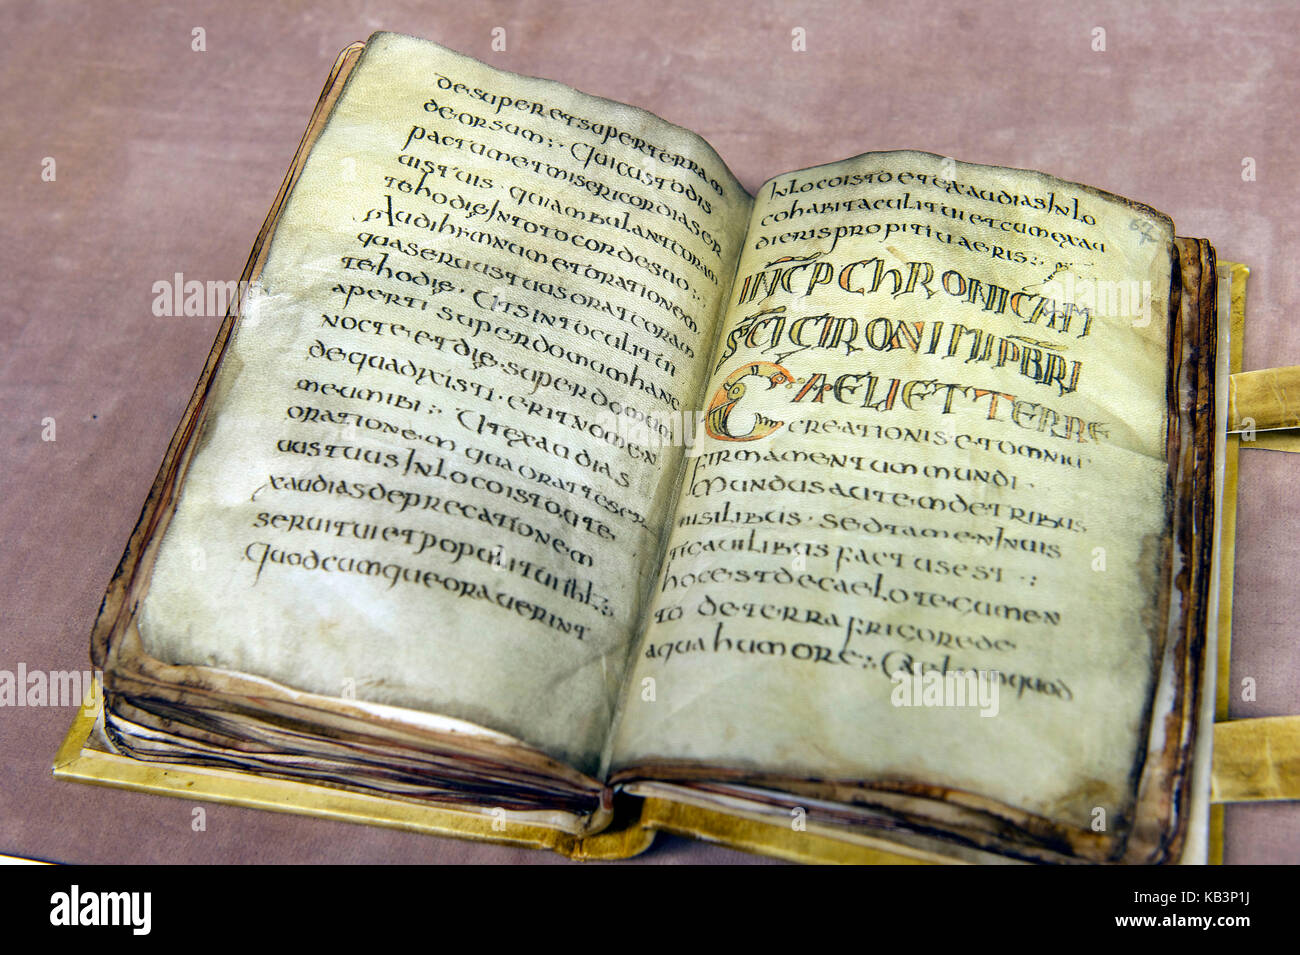 desuper et super terram
deorsum :. Qui custodis
pactum et misericordia ser
uis tuis · qui ambulant coram
te hodie / In toto corde suo :·
Audi hymnum et orationem
quaseruus tuus orat coram
te hodie · Ut sint oculi tui
aperti super domum hanc
nocte et die · super domum
de qua dixisti · erit nomen
meum ibi :· Ut exaudias
orationem qua orat te ser
uus tuus / In loco isto et e
xaudias deprecationem
serui tui et populi tui
Quodcumque orauerint
In loco isto et exaudias / In lo
co habitaculi tui et cum exau
dieris propitiu aeris :.
67
INCP CHRONICAM
SCI CIRONIMI PBRI
CAELI ET TERRE
creationis et omniu
firmamentum mundi ·
Mundus autem de tribus
uisilibus · sed tamen / Inuis
ticauilibus factus est :·
hoc est de caelo tegumen
to de terra frigore de
aqua humore :· Caelum quod
alamy
Image ID: KB3P1J
www.alamy.com